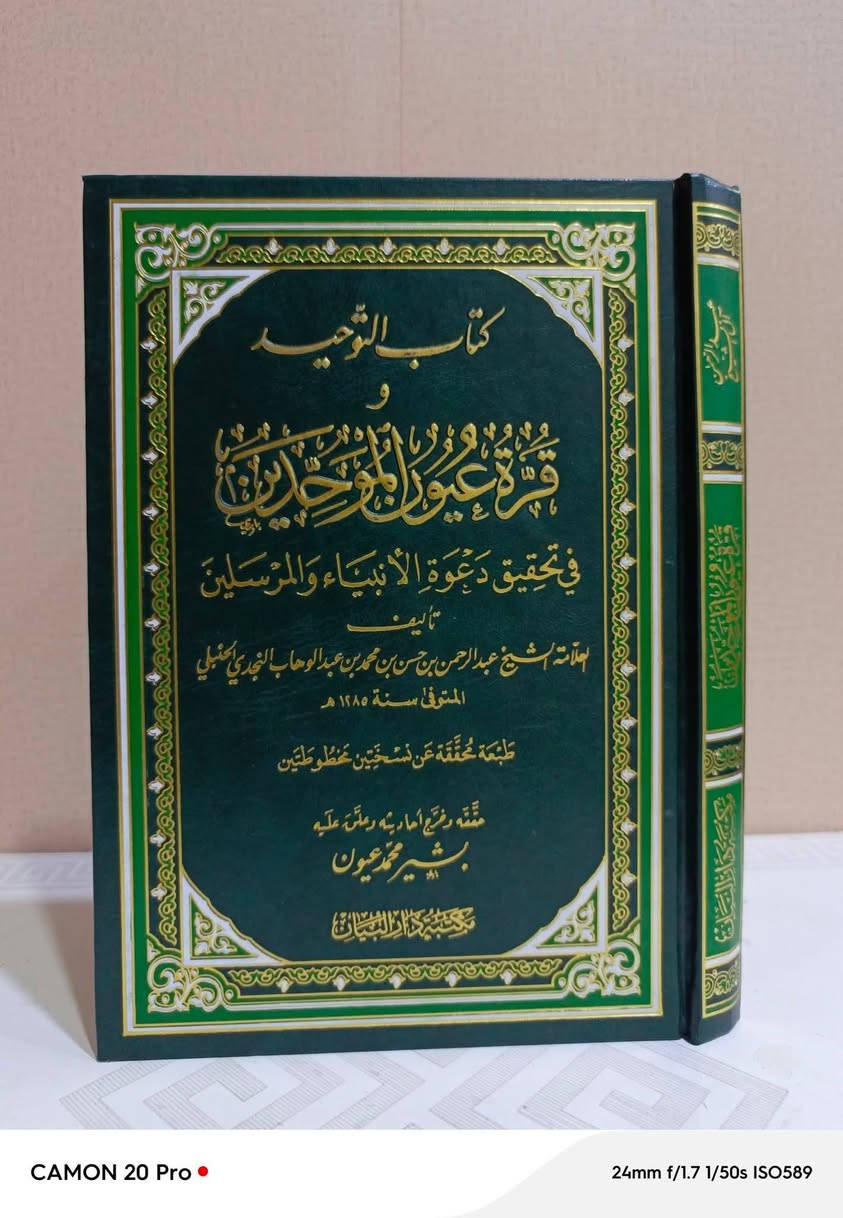 كتاب التّوحيد
و
قُرَّةُ عُيُونِ المُوَحِّدِينَ
في تحقيق دَعْوَةِ الأنبيَاء وَالمرْسَلِينَ
تأليف
العلّامة الشيخ عبد الرحمن بن حسن بن محمد بن عبد الوهاب النجدي الحنبلي
المتوفى سنة ١٢٨٥ هـ
طبعَة مُحَقَّقَة عَن نسْخَتِين مَخطُوطَتين
حقَّقه وخرّج أحاديثه وعلّق عليه
بشير محمّد عيون
مكتبة دار البيان
عبد الرحمن
آل الشيخ
قرة عيون الموحدين
مكتبة دار البيان
CAMON 20 Pro
24mm f/1.7 1/50s ISO589